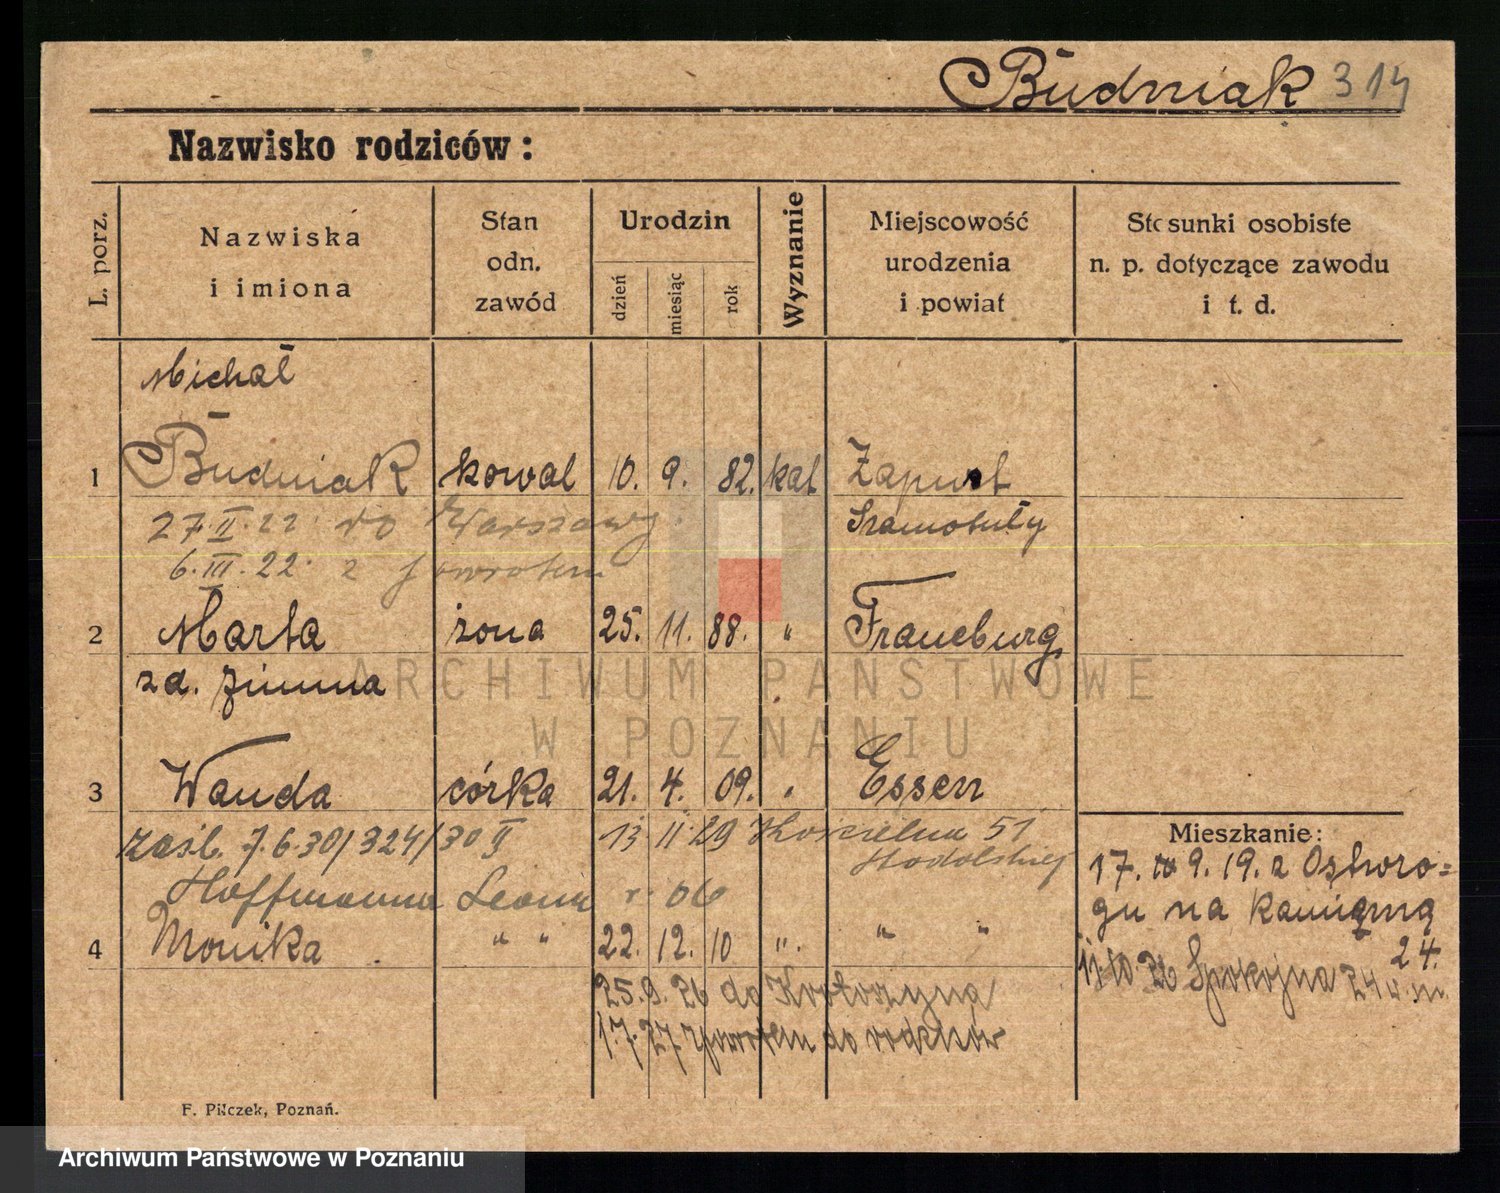 Budniak 314
Nazwisko rodziców:
L. porz.
Nazwiska
i imiona
Stan
odn.
zawód
Urodzin
dzień
miesiąc
rok
Wyznanie
Miejscowość
urodzenia
i powiat
Stosunki osobiste
n. p. dotyczące zawodu
i t. d.
Michał
1 Budniak kowal 10. 9. 82. kat Zapust
Szamotuły
27.II.22 do Warszawy.
6.III.22 z powrotem
2 Marta żona 25. 11. 88. " Frauenburg
zd. Zimna
3 Wanda córka 21. 4. 09. " Essen
zaśl. 7.6.30/324/30 II 13 II 29 Kościelna 51
Hoffmann Leon r. 06
4 Monika " " 22. 12. 10 " " "
25.9.26 do Krotoszyna
1.7.27 z powrotem do rodziców
Mieszkanie:
17. 9. 19. z Ostro=
gu na Kamienną
24.
11.10.26 Spokojna 24
F. Pilczek, Poznań.
ARCHIWUM PAŃSTWOWE
W POZNANIU
Archiwum Państwowe w Poznaniu